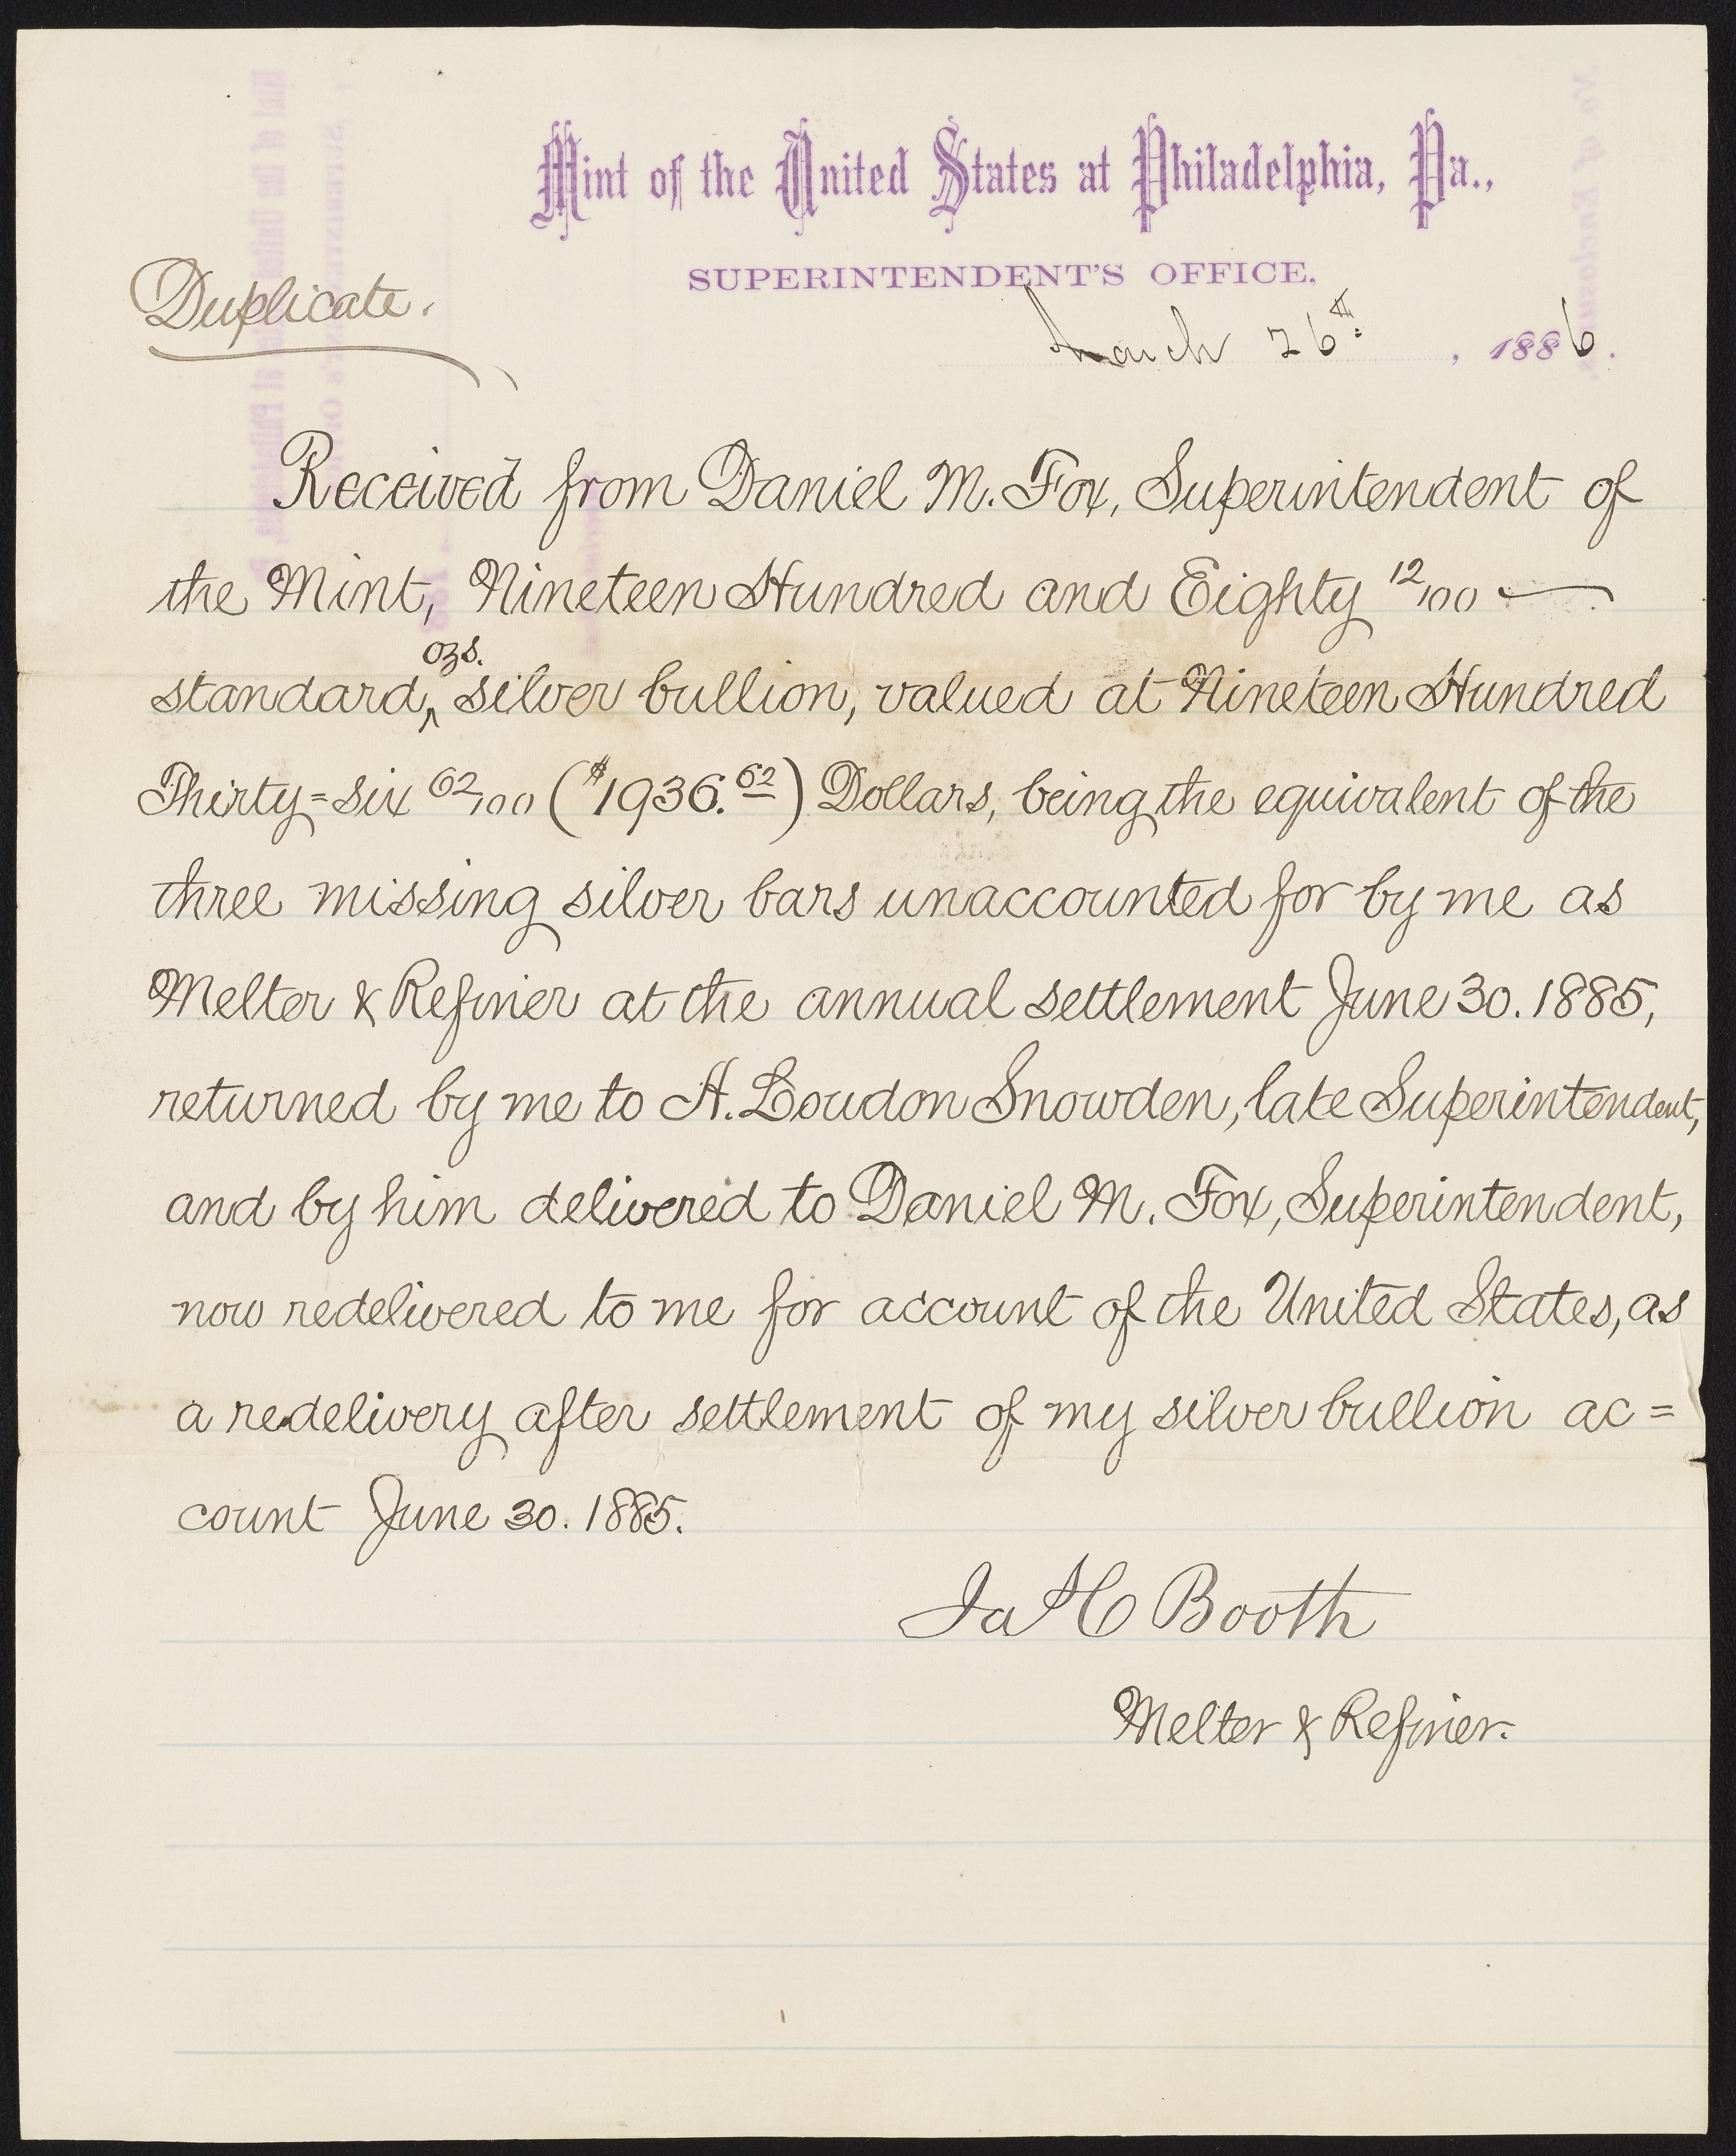 Mint of the United States at Philadelphia, Pa.,
SUPERINTENDENT'S OFFICE,
Duplicate.
March 26th, 1886.
Received from Daniel M. Fox, Superintendent of
the Mint, Nineteen Hundred and Eighty 12/100 —
standard, ozs. silver bullion, valued at Nineteen Hundred
Thirty=six 62/100 ($1936.62) Dollars, being the equivalent of the
three missing silver bars unaccounted for by me as
Melter & Refiner at the annual settlement June 30. 1885,
returned by me to A. Loudon Snowden, late Superintendent,
and by him delivered to Daniel M. Fox, Superintendent,
now redelivered to me for account of the United States, as
a redelivery after settlement of my silver bullion ac=
count June 30. 1885.
Ja H Booth
Melter & Refiner.